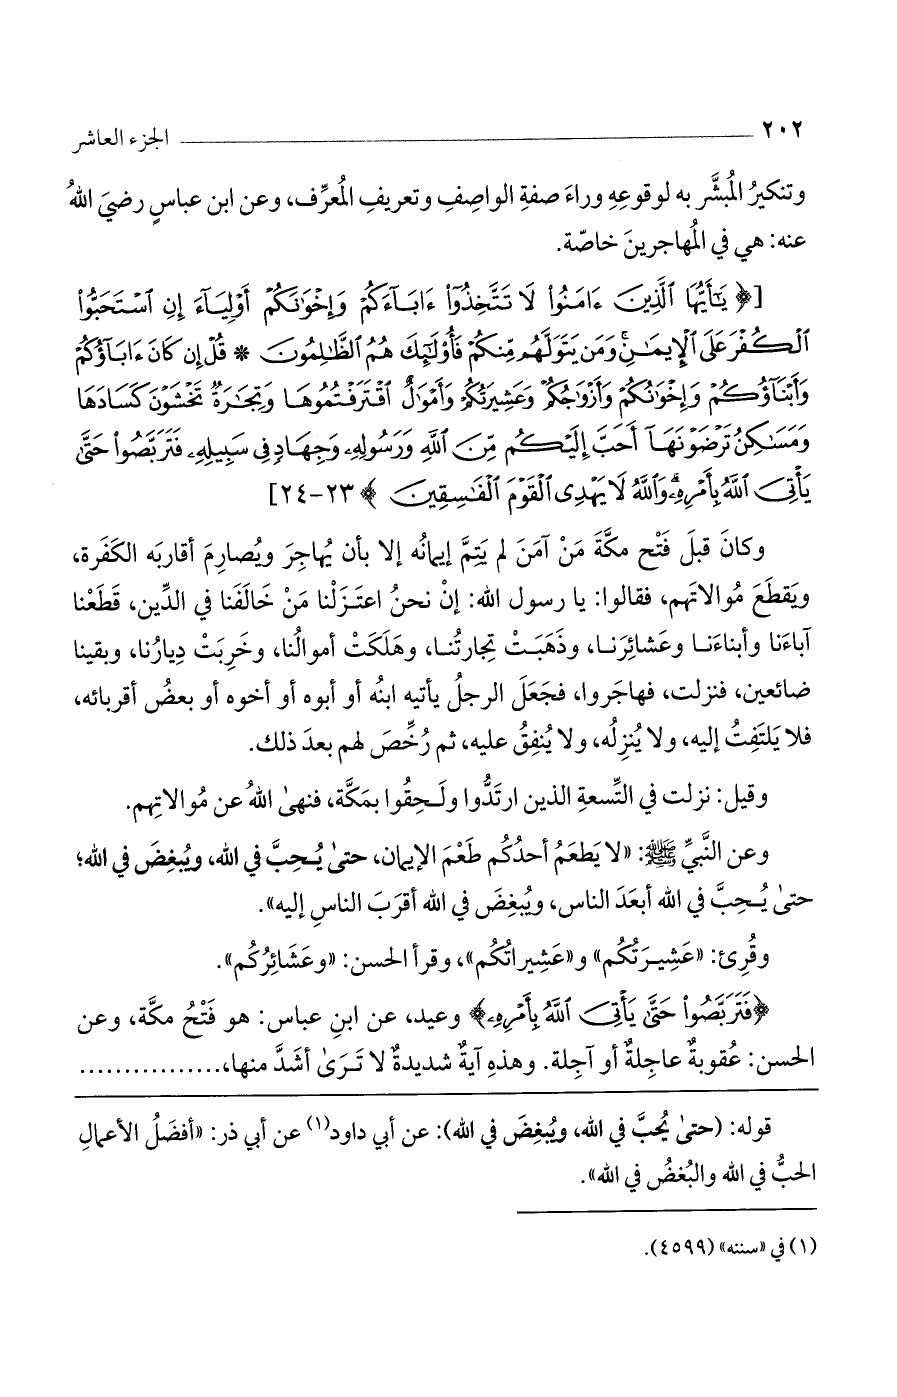 ٢٠٢ ــــــــــــــــــــــــــــــــــــــ الجزء العاشر
وتنكيرُ المُبشَّر به لوقوعِهِ وراءَ صفةِ الواصِفِ وتعريفِ المُعرِّف، وعن ابن عباسٍ رضيَ اللهُ
عنه: هي في المُهاجرينَ خاصّة.
[﴿ يَٰٓأَيُّهَا ٱلَّذِينَ ءَامَنُوا۟ لَا تَتَّخِذُوٓا۟ ءَابَآءَكُمْ وَإِخْوَٰنَكُمْ أَوْلِيَآءَ إِنِ ٱسْتَحَبُّوا۟
ٱلْكُفْرَ عَلَى ٱلْإِيمَٰنِ ۚ وَمَن يَتَوَلَّهُم مِّنكُمْ فَأُو۟لَٰٓئِكَ هُمُ ٱلظَّٰلِمُونَ * قُلْ إِن كَانَ ءَابَآؤُكُمْ
وَأَبْنَآؤُكُمْ وَإِخْوَٰنُكُمْ وَأَزْوَٰجُكُمْ وَعَشِيرَتُكُمْ وَأَمْوَٰلٌ ٱقْتَرَفْتُمُوهَا وَتِجَٰرَةٌ تَخْشَوْنَ كَسَادَهَا
وَمَسَٰكِنُ تَرْضَوْنَهَآ أَحَبَّ إِلَيْكُم مِّنَ ٱللَّهِ وَرَسُولِهِۦ وَجِهَادٍ فِى سَبِيلِهِۦ فَتَرَبَّصُوا۟ حَتَّىٰ
يَأْتِىَ ٱللَّهُ بِأَمْرِهِۦ ۗ وَٱللَّهُ لَا يَهْدِى ٱلْقَوْمَ ٱلْفَٰسِقِينَ ﴾ ٢٣-٢٤]
وكانَ قبلَ فَتْح مكَّةَ مَنْ آمَنَ لم يَتِمَّ إيمانُه إلا بأن يُهاجِرَ ويُصارِمَ أقاربَه الكَفَرة،
ويَقطَعَ مُوالاتَهم، فقالوا: يا رسول الله: إنْ نحنُ اعتَزَلْنا مَنْ خَالَفَنا في الدِّين، قَطَعْنا
آباءَنا وأبناءَنا وعَشائِرَنا، وذَهَبَتْ تِجارتُنا، وهَلَكَتْ أموالُنا، وخَرِبَتْ دِيارُنا، وبقينا
ضائعين، فنزلت، فهاجَروا، فجَعَلَ الرجلُ يأتيه ابنُه أو أبوه أو أخوه أو بعضُ أقربائه،
فلا يَلتَفِتُ إليه، ولا يُنزِلُه، ولا يُنفِقُ عليه، ثم رُخِّصَ لهم بعدَ ذلك.
وقيل: نزلت في التِّسعةِ الذين ارتَدُّوا ولَحِقُوا بمَكَّة، فنهىٰ اللهُ عن مُوالاتِهم.
وعن النَّبيِّ ﷺ: «لا يَطعَمُ أحدُكُم طَعْمَ الإيمان، حتىٰ يُحِبَّ في الله، ويُبغِضَ في الله؛
حتىٰ يُحِبَّ في الله أبعَدَ الناس، ويُبغِضَ في الله أقرَبَ الناسِ إليه».
وقُرِئ: «عَشِيرَتُكُم» و«عَشِيراتُكُم»، وقرأ الحسن: «وعَشَائِرُكُم».
﴿فَتَرَبَّصُوا۟ حَتَّىٰ يَأْتِىَ ٱللَّهُ بِأَمْرِهِۦ﴾ وعيد، عن ابنِ عباس: هو فَتْحُ مكَّة، وعن
الحسن: عُقوبةٌ عاجِلةٌ أو آجِلة. وهذهِ آيةٌ شديدةٌ لا تَرَىٰ أشَدَّ منها،................
قوله: (حتىٰ يُحبَّ في الله، ويُبغِضَ في الله): عن أبي داود(١) عن أبي ذر: «أفضَلُ الأعمالِ
الحبُّ في الله والبُغضُ في الله».
(١) في «سننه» (٤٥٩٩).